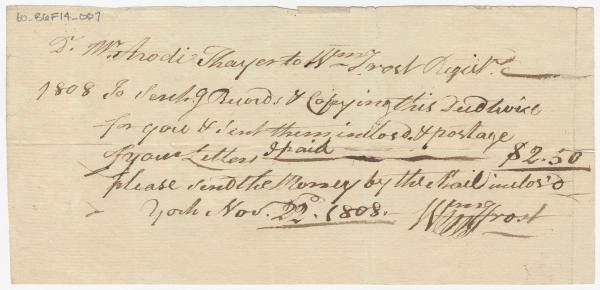 60_B6F14_007
Dr. Mr. Arodi Thayer to Wm. Frost Regist.r
1808 To Search.g Records & Copying this Deed twice
for you & sent them inclos'd & postage
of your Letters I paid $2.50
please send the Money by the Mail inclos'd
York Nov. 22d. 1808. Wm Frost